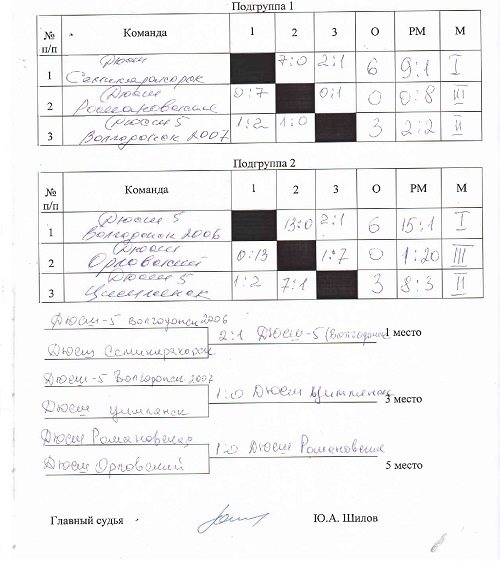 Подгруппа 1
№ п/п Команда 1 2 3 О РМ М
1 Дюсш Семикаракорск 7:0 2:1 6 9:1 I
2 Дюсш Романовская 0:7 0:1 0 0:8 III
3 Дюсш 5 Волгодонск 2007 1:2 1:0 3 2:2 II
Подгруппа 2
№ п/п Команда 1 2 3 О РМ М
1 Дюсш 5 Волгодонск 2006 13:0 2:1 6 15:1 I
2 Дюсш Орловский 0:13 1:7 0 1:20 III
3 Дюсш 5 Цимлянск 1:2 7:1 3 8:3 II
Дюсш-5 Волгодонск 2006
2:1 Дюсш-5 (Волгодонск 1 место
Дюсш Семикаракорск
Дюсш-5 Волгодонск 2007
1:0 Дюсш Цимлянск 3 место
Дюсш Цимлянск
Дюсш Романовская
1:0 Дюсш Романовская
Дюсш Орловский 5 место
Главный судья Ю.А. Шилов